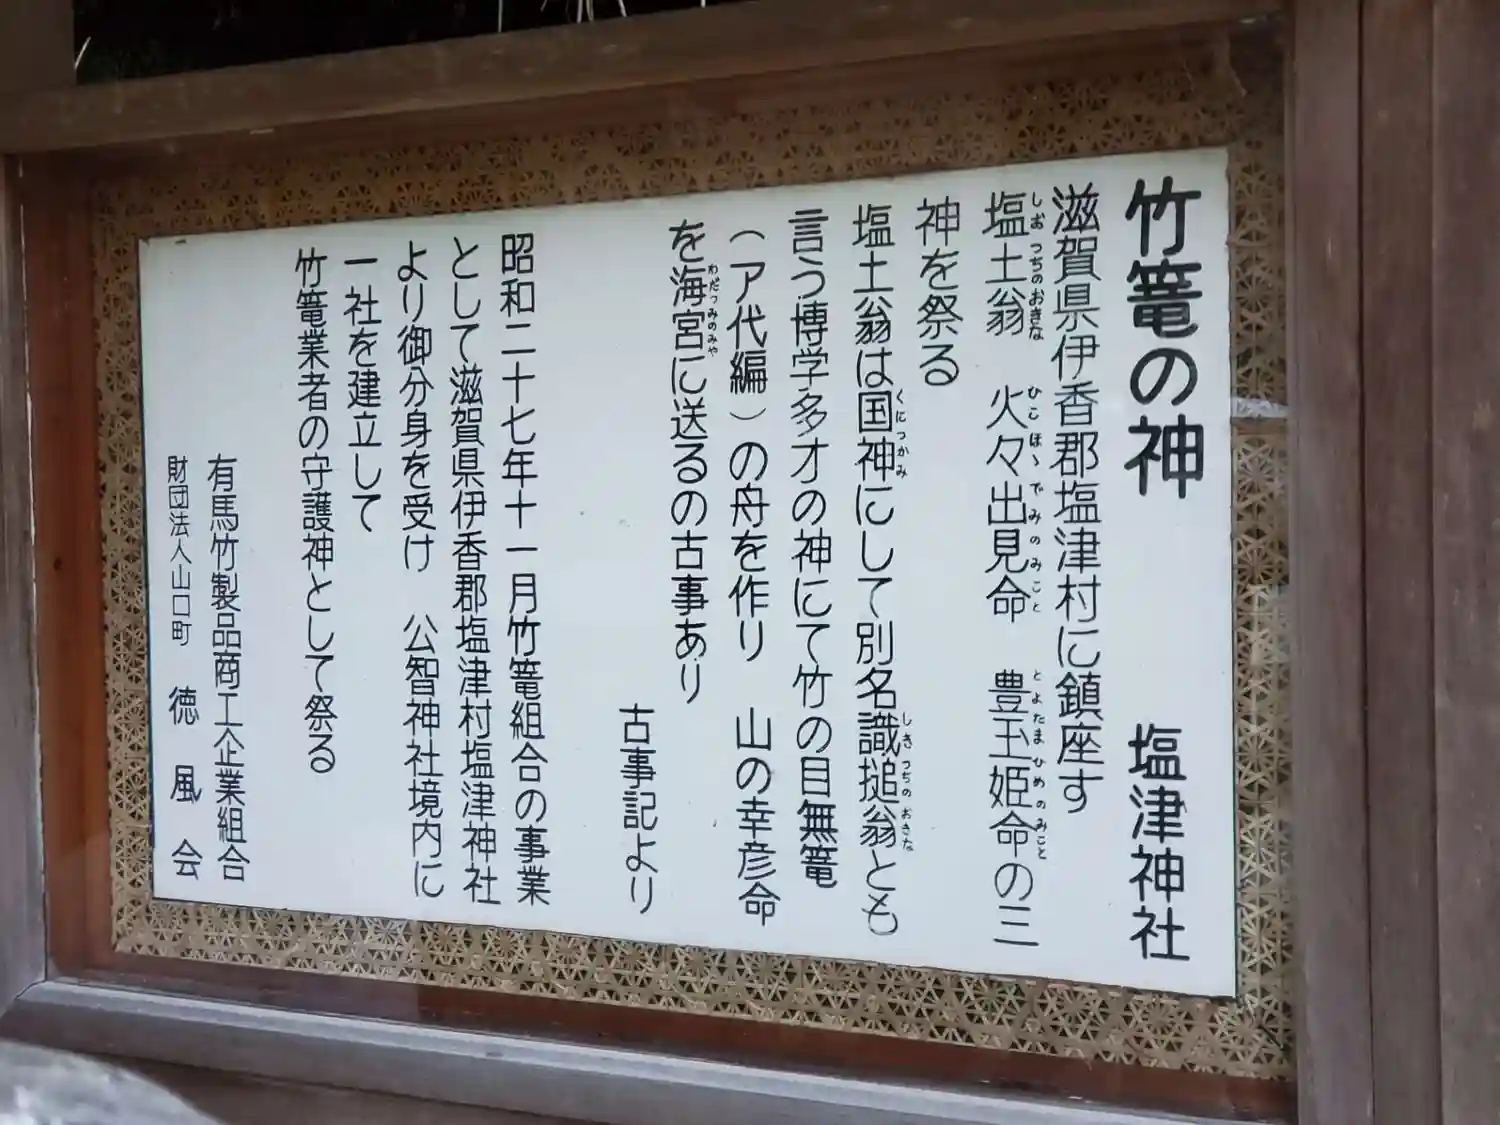 竹篭の神　塩津神社
滋賀県伊香郡塩津村に鎮座す
塩土翁　火々出見命　豊玉姫命の三
しおつちのおきな　ひこほゝでみのみこと　とよたまひめのみこと
神を祭る
塩土翁は国神にして別名識搥翁とも
くにつかみ　しきつちのおきな
言う博学多才の神にて竹の目無篭
（ア代編）の舟を作り　山の幸彦命
を海宮に送るの古事あり
わだつみのみや
古事記より
昭和二十七年十一月竹篭組合の事業
として滋賀県伊香郡塩津村塩津神社
より御分身を受け　公智神社境内に
一社を建立して
竹篭業者の守護神として祭る
有馬竹製品商工企業組合
財団法人山口町　徳風会